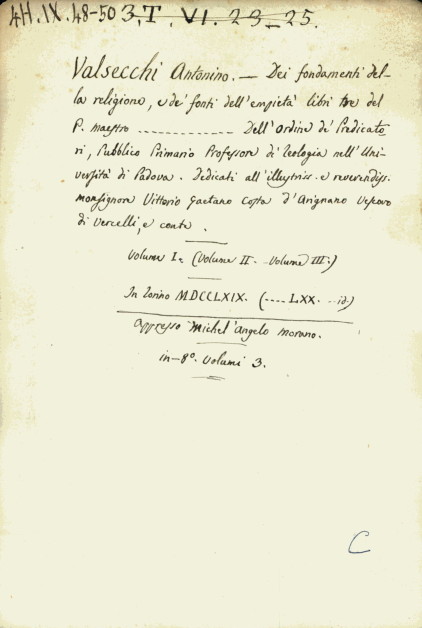 4H.IX.48-50 3.T. VI. 23-25.
Valsecchi Antonino. — Dei fondamenti del-
la religione, e de' fonti dell'empietà libri tre del
P. maestro ............. Dell'Ordine de' Predicato
ri, Pubblico Primario Professore di Teologia nell'Uni-
versità di Padova. Dedicati all'illustriss. e reverendiss.
monsignore Vittorio Gaetano Costa d'Arignano Vescovo
di Vercelli, e conte.
Volume I. (Volume II. .. Volume III.)
In Torino MDCCLXIX. (.... LXX. .. id.)
appresso Michel'Angelo Morano.
in-8°. Volumi 3.
C